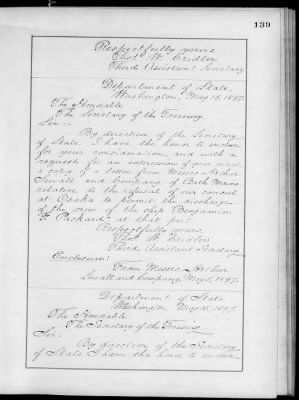 139
Respectfully yours
Thos. W. Cridler
Third Assistant Secretary
Department of State,
Washington, May 15, 1897.
The Honorable
The Secretary of the Treasury.
Sir:-
By direction of the Secretary
of State, I have the honor to enclose
for your consideration, and with a
request for an expression of your views
a copy of a letter from Messrs. Arthur
Sewall and Company, of Bath, Maine,
relative to the refusal of our consul
at Osaka to permit the discharge
of the crew of the ship Benjamin
F. Packard at that port.
Respectfully yours,
Thos. W. Cridler
Third Assistant Secretary
Enclosure:
From Messrs. Arthur
Sewall and Company, May 5, 1897.
Department of State,
Washington, May 15, 1897.
The Honorable
The Secretary of the Treasury
Sir:
By direction of the Secretary
of State, I have the honor to enclose